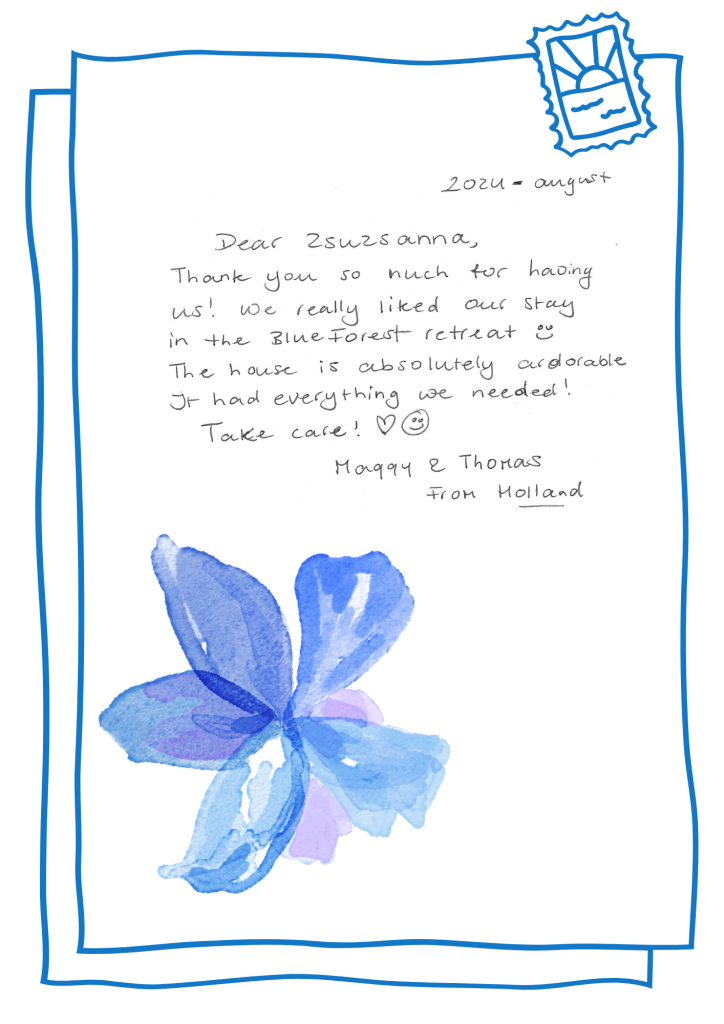 2024 - august
Dear Zsuzsanna,
Thank you so much for having
us! We really liked our stay
in the Blue Forest retreat
The house is absolutely ardorable
It had everything we needed!
Take care! ♡
Maggy & Thomas
From Holland